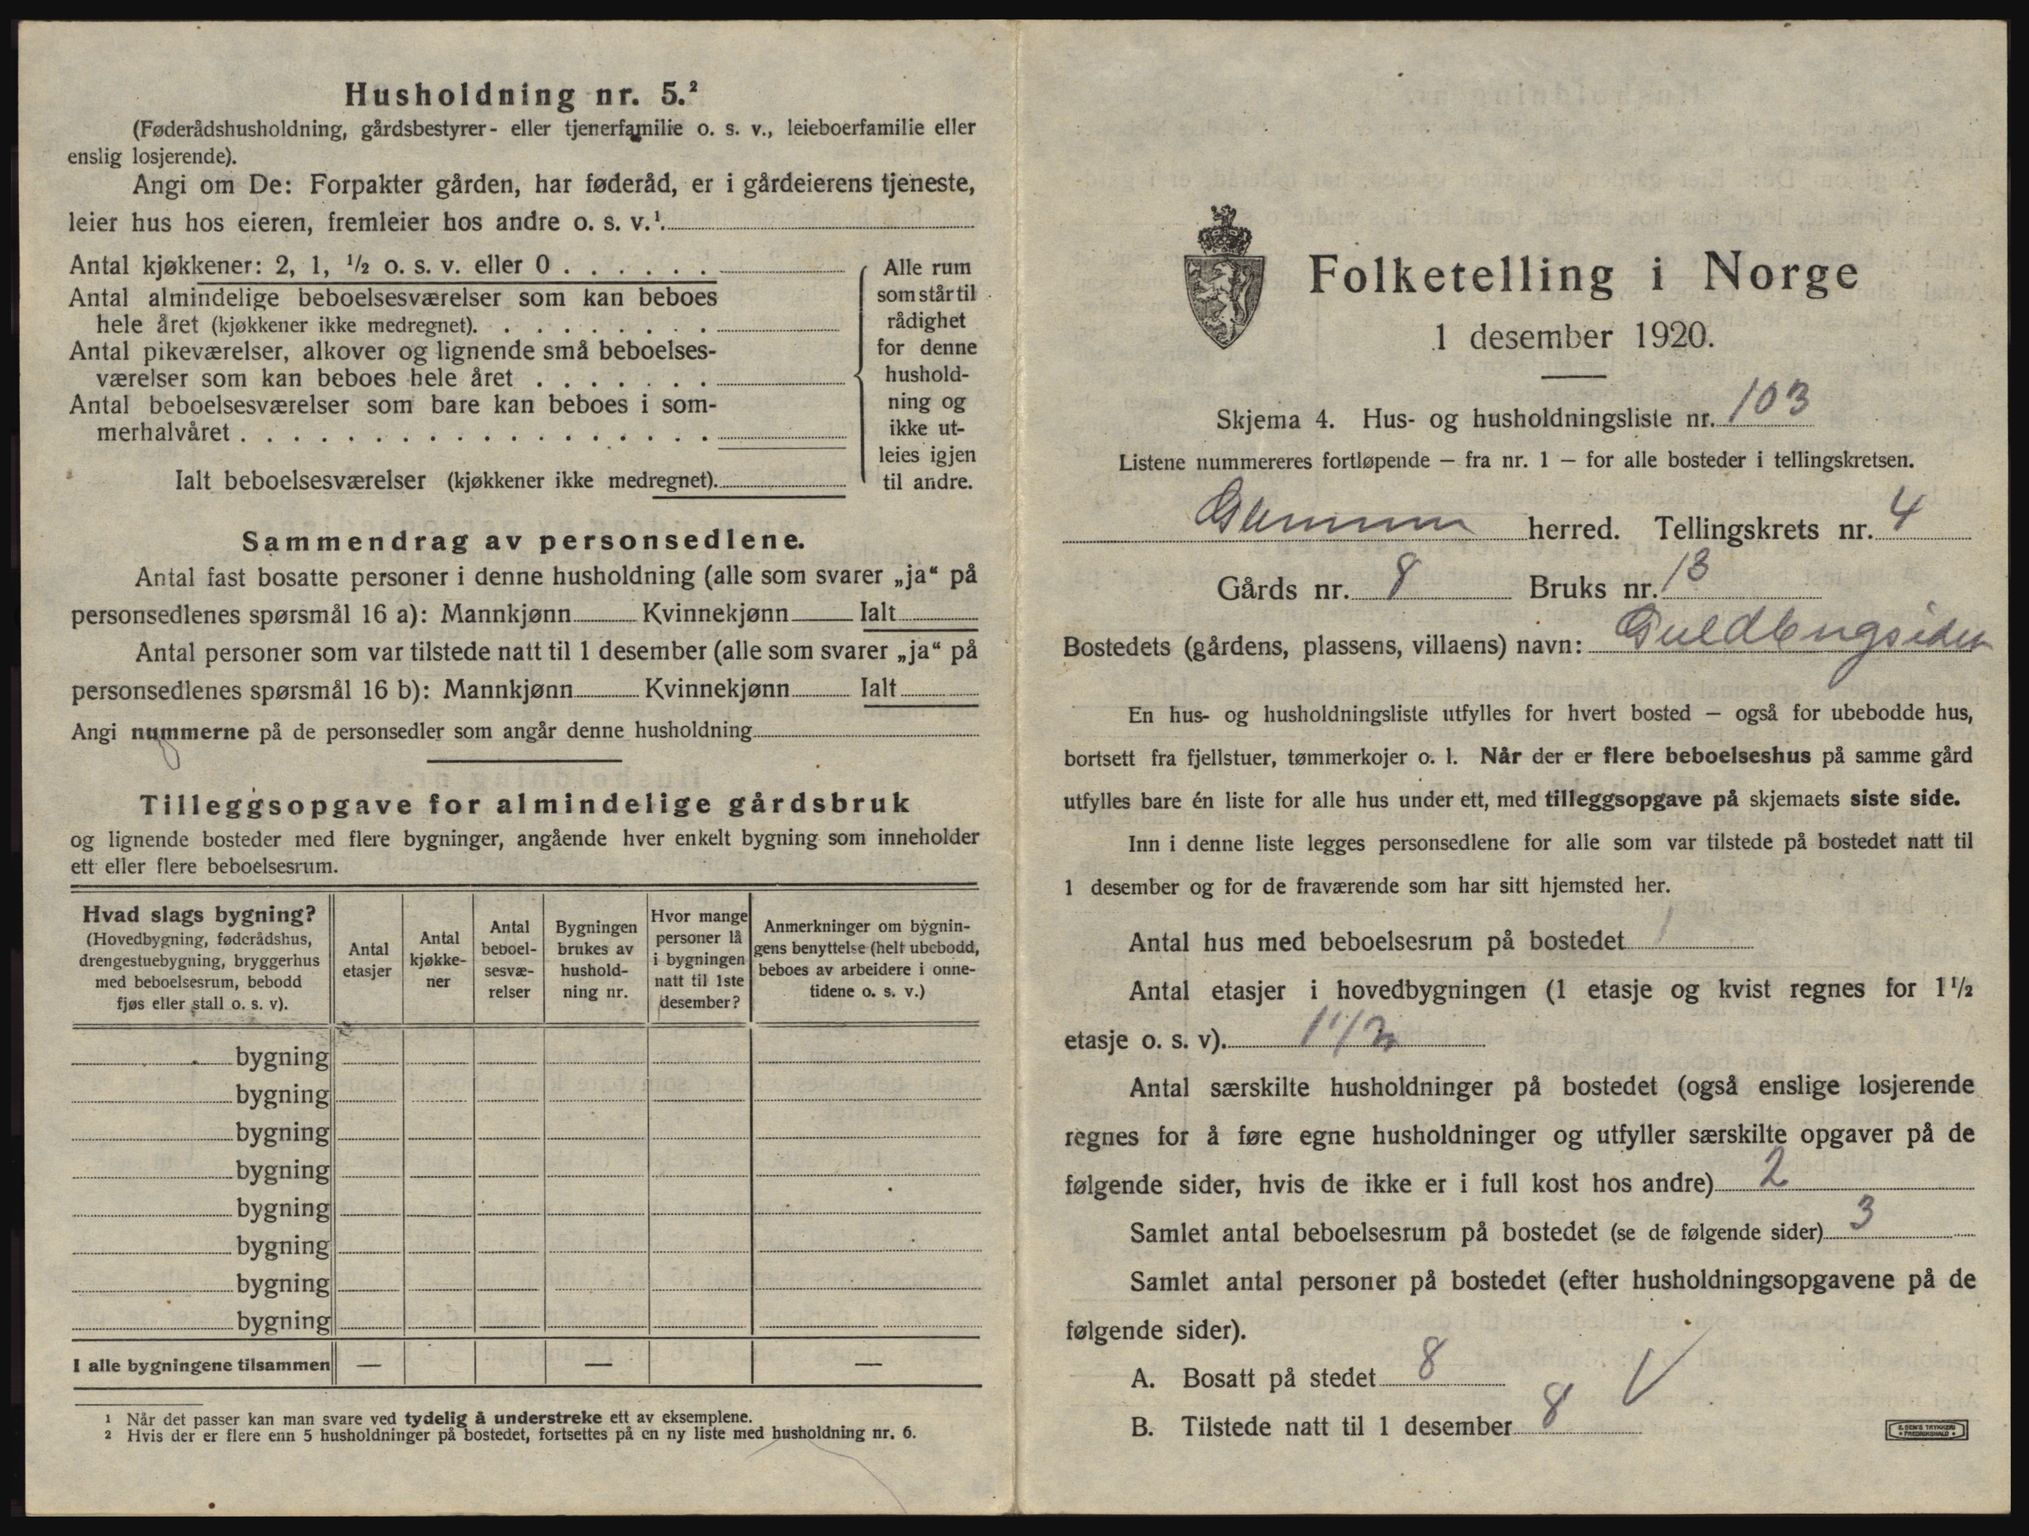 Husholdning nr. 5.²
(Føderådshusholdning, gårdsbestyrer- eller tjenerfamilie o. s. v., leieboerfamilie eller
enslig losjerende).
Angi om De: Forpakter gården, har føderåd, er i gårdeierens tjeneste,
leier hus hos eieren, fremleier hos andre o. s. v.¹
Antal kjøkkener: 2, 1, ½ o. s. v. eller 0 . . . . . .
Antal almindelige beboelsesværelser som kan beboes
hele året (kjøkkener ikke medregnet). . . . . . . . .
Antal pikeværelser, alkover og lignende små beboelses-
værelser som kan beboes hele året . . . . . . .
Antal beboelsesværelser som bare kan beboes i som-
merhalvåret . . . . . . . . . . . . . . . . . .
Ialt beboelsesværelser (kjøkkener ikke medregnet).
Alle rum
som står til
rådighet
for denne
hushold-
ning og
ikke ut-
leies igjen
til andre.
Sammendrag av personsedlene.
Antal fast bosatte personer i denne husholdning (alle som svarer „ja“ på
personsedlenes spørsmål 16 a): Mannkjønn Kvinnekjønn Ialt
Antal personer som var tilstede natt til 1 desember (alle som svarer „ja“ på
personsedlenes spørsmål 16 b): Mannkjønn Kvinnekjønn Ialt
Angi nummerne på de personsedler som angår denne husholdning
Tilleggsopgave for almindelige gårdsbruk
og lignende bosteder med flere bygninger, angående hver enkelt bygning som inneholder
ett eller flere beboelsesrum.
Hvad slags bygning?
(Hovedbygning, føderådshus,
drengestuebygning, bryggerhus
med beboelsesrum, bebodd
fjøs eller stall o. s. v).
Antal
etasjer
Antal
kjøkke-
ner
Antal
beboel-
sesvæ-
relser
Bygningen
brukes av
hushold-
ning nr.
Hvor mange
personer lå
i bygningen
natt til 1ste
desember?
Anmerkninger om bygnin-
gens benyttelse (helt ubebodd,
beboes av arbeidere i onne-
tidene o. s. v.)
bygning
bygning
bygning
bygning
bygning
bygning
bygning
bygning
I alle bygningene tilsammen — — —
¹ Når det passer kan man svare ved tydelig å understreke ett av eksemplene.
² Hvis der er flere enn 5 husholdninger på bostedet, fortsettes på en ny liste med husholdning nr. 6.
Folketelling i Norge
1 desember 1920.
Skjema 4. Hus- og husholdningsliste nr. 103
Listene nummereres fortløpende — fra nr. 1 — for alle bosteder i tellingskretsen.
Glemmen herred. Tellingskrets nr. 4
Gårds nr. 8 Bruks nr. 13
Bostedets (gårdens, plassens, villaens) navn: Guldbergsiden
En hus- og husholdningsliste utfylles for hvert bosted — også for ubebodde hus,
bortsett fra fjellstuer, tømmerkojer o. l. Når der er flere beboelseshus på samme gård
utfylles bare én liste for alle hus under ett, med tilleggsopgave på skjemaets siste side.
Inn i denne liste legges personsedlene for alle som var tilstede på bostedet natt til
1 desember og for de fraværende som har sitt hjemsted her.
Antal hus med beboelsesrum på bostedet 1
Antal etasjer i hovedbygningen (1 etasje og kvist regnes for 1½
etasje o. s. v). 1 1/2
Antal særskilte husholdninger på bostedet (også enslige losjerende
regnes for å føre egne husholdninger og utfyller særskilte opgaver på de
følgende sider, hvis de ikke er i full kost hos andre) 2
Samlet antal beboelsesrum på bostedet (se de følgende sider) 3
Samlet antal personer på bostedet (efter husholdningsopgavene på de
følgende sider).
A. Bosatt på stedet 8
B. Tilstede natt til 1 desember 8